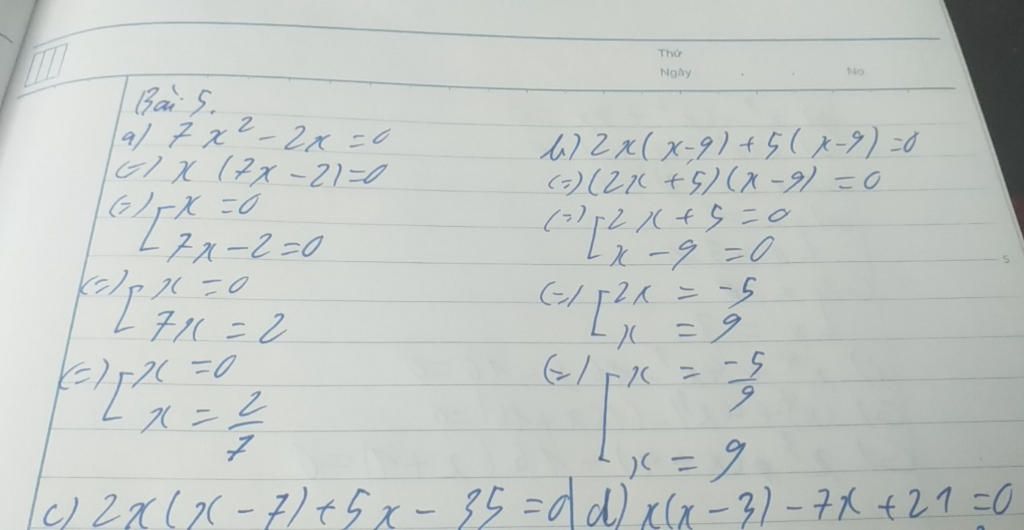 Thứ
Ngày . . No
Bài 5.
a) 7x² - 2x = 0
(=) x (7x - 2) = 0
(=) [ x = 0
7x - 2 = 0
(=) [ x = 0
7x = 2
(=) [ x = 0
x = 2/7
b) 2x(x-9) + 5(x-9) = 0
(=) (2x + 5)(x - 9) = 0
(=) [ 2x + 5 = 0
x - 9 = 0
(=) [ 2x = -5
x = 9
(=) [ x = -5/9
x = 9
5
c) 2x(x - 7) + 5x - 35 = 0
d) x(x - 3) - 7x + 21 = 0